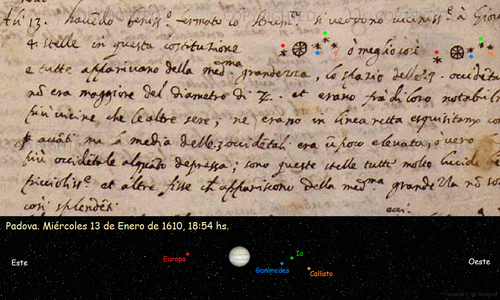 13. hauẽdo beniss.e fermato lo si veddono viciniss.e à
4. stelle in questa costituzione ò meglio così
e tutte apparivano della med.ma grandezza, lo spazio delle 3. occidẽt
nõ era maggiore del diametro di ♃. et erano frà di loro notabil
più uicine che le altre sere; ne erano in linea retta esquisitam
avãti ma la media delle 3 occidẽtali era ũ poco elevata, ò vero
più occidẽtale alquãto depressa; sono queste stelle tutte molto lucide
et altre fisse appariscono della med.ma grandezza nõ
così splendẽti.
Padova. Miércoles 13 de Enero de 1610, 18:54 hs.
Este Europa Ganímedes Io Callisto Oeste